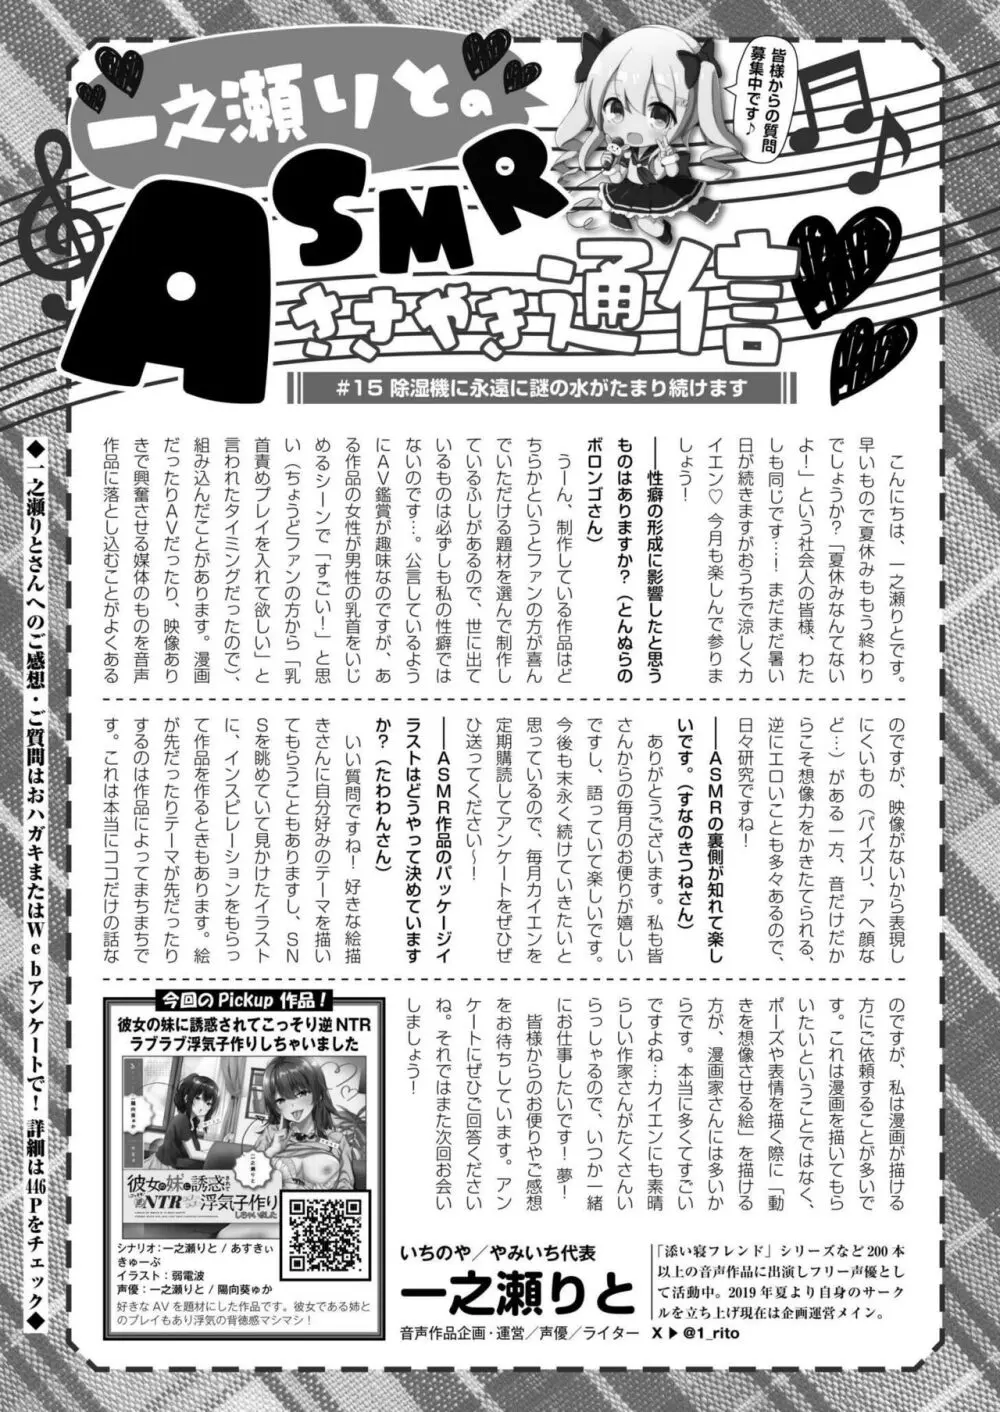 一之瀬りとの
ASMR
ささやき通信
皆様からの質問
募集中です♪
#15 除湿機に永遠に謎の水がたまり続けます
こんにちは、一之瀬りとです。
早いもので夏休みももう終わり
でしょうか?「夏休みなんてない
よ!」という社会人の皆様、わた
しも同じです…!まだまだ暑い
日が続きますがおうちで涼しくカ
イエン♡今月も楽しんで参りま
しょう!
――性癖の形成に影響したと思う
ものはありますか?(とんぬらの
ボロンゴさん)
うーん、制作している作品はど
ちらかというとファンの方が喜ん
でいただける題材を選んで制作し
ているふしがあるので、世に出て
いるものは必ずしも私の性癖では
ないのです…。公言しているよう
にAV鑑賞が趣味なのですが、あ
る作品の女性が男性の乳首をいじ
めるシーンで「すごい!」と思
い(ちょうどファンの方から「乳
首責めプレイを入れて欲しい」と
言われたタイミングだったので)、
組み込んだことがあります。漫画
だったりAVだったり、映像あり
きで興奮させる媒体のものを音声
作品に落とし込むことがよくある
のですが、映像がないから表現し
にくいもの(パイズリ、アヘ顔な
ど…)がある一方、音だけだか
らこそ想像力をかきたてられる、
逆にエロいことも多々あるので、
日々研究ですね!
――ASMRの裏側が知れて楽し
いです。(すなのきつねさん)
ありがとうございます。私も皆
さんからの毎月のお便りが嬉しい
ですし、語っていて楽しいです。
今後も末永く続けていきたいと
思っているので、毎月カイエンを
定期購読してアンケートをぜひぜ
ひ送ってください〜!
――ASMR作品のパッケージイ
ラストはどうやって決めています
か?(たわわんさん)
いい質問ですね!好きな絵描
きさんに自分好みのテーマを描い
てもらうこともありますし、SN
Sを眺めていて見かけたイラスト
に、インスピレーションをもらっ
て作品を作るときもあります。絵
が先だったりテーマが先だったり
するのは作品によってまちまちで
す。これは本当にココだけの話な
のですが、私は漫画が描ける
方にご依頼することが多いで
す。これは漫画を描いてもら
いたいということではなく、
ポーズや表情を描く際に「動
きを想像させる絵」を描ける
方が、漫画家さんには多いか
らです。本当に多くてすごい
ですよね…カイエンにも素晴
らしい作家さんがたくさんい
らっしゃるので、いつか一緒
にお仕事したいです!夢!
皆様からのお便りやご感想
をお待ちしています。アン
ケートにぜひご回答ください
ね。それではまた次回お会い
しましょう!
今回のPickup作品!
彼女の妹に誘惑されてこっそり逆NTR
ラブラブ浮気子作りしちゃいました
陽向葵ゅか
一之瀬りと
彼女の妹に誘惑されて
逆NTR
浮気子作り
しちゃいました
シナリオ:一之瀬りと/あすきぃ
きゅーぶ
イラスト:弱電波
声優:一之瀬りと/陽向葵ゅか
好きなAVを題材にした作品です。彼女である姉と
のプレイもあり浮気の背徳感マシマシ!
いちのや/やみいち代表
一之瀬りと
音声作品企画・運営/声優/ライター
「添い寝フレンド」シリーズなど200本
以上の音声作品に出演しフリー声優とし
て活動中。2019年夏より自身のサーク
ルを立ち上げ現在は企画運営メイン。
X▶@1_rito
◆一之瀬りとさんへのご感想・ご質問はおハガキまたはWebアンケートで!詳細は446Pをチェック◆